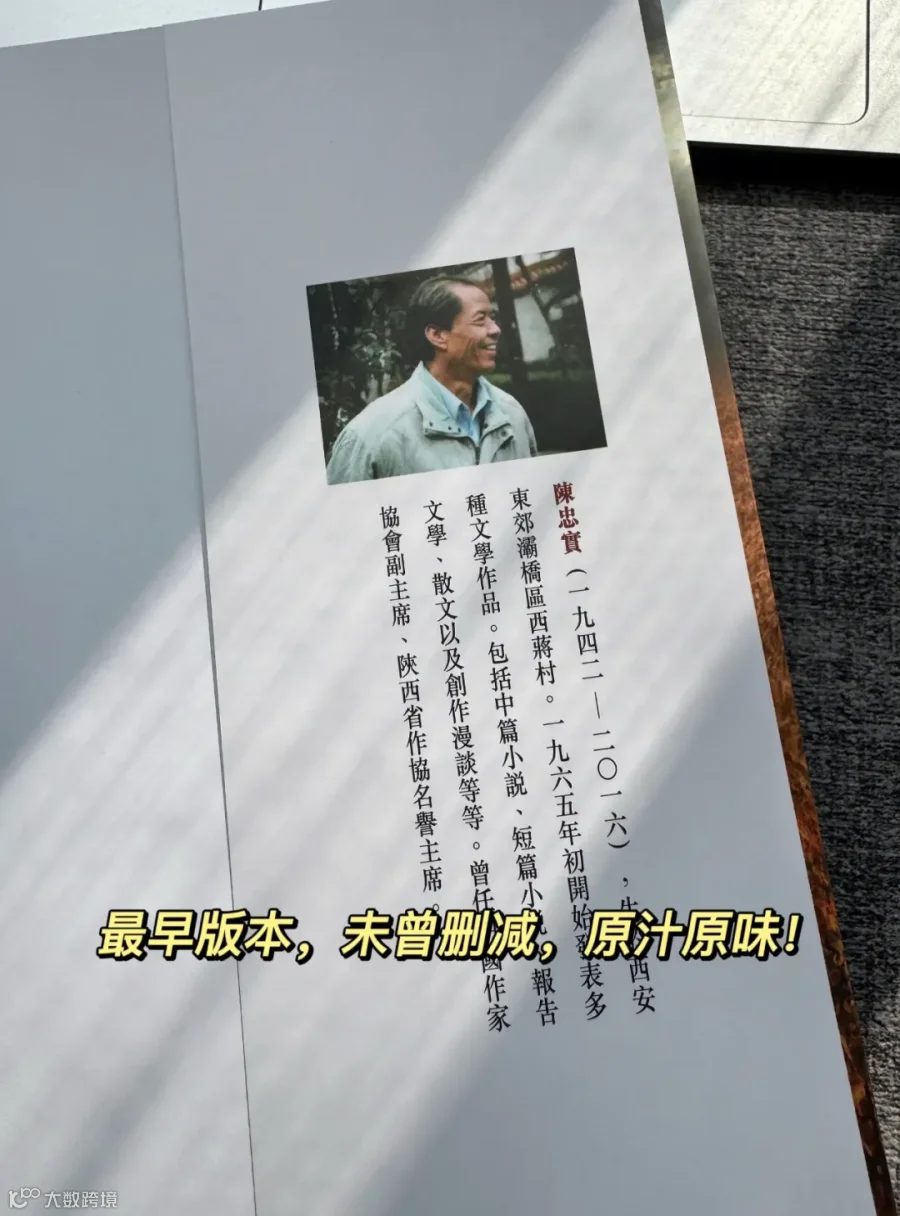 陳忠實（一九四二—二〇一六），生 西安
東郊灞橋區西蔣村。一九六五年初開始發表多
種文學作品。包括中篇小説、短篇小 報告
文學、散文以及創作漫談等等。曾任 國作家
協會副主席、陝西省作協名譽主席。
最早版本，未曾删减，原汁原味！
大数跨境